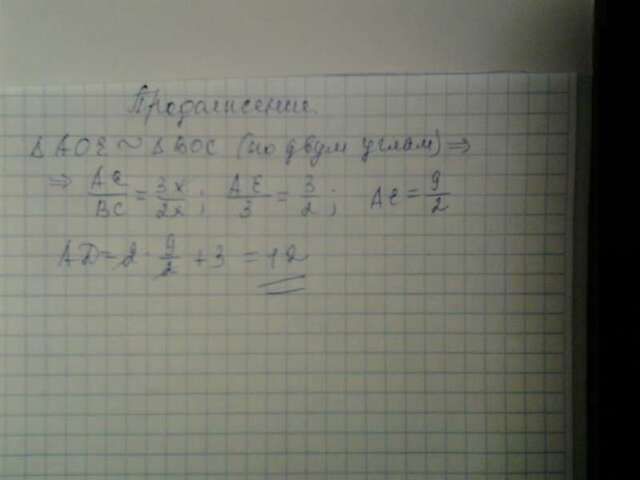 Продолжение.
Δ AOE ~ Δ BOC (по двум углам) ⇒
⇒ AE/BC = 3x/2x ; AE/3 = 3/2 ; AE = 9/2
AD = 2 · 9/2 + 3 = 12